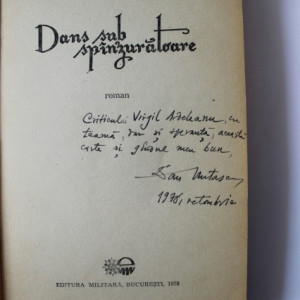 Dans sub
spînzurătoare
roman
Criticului Virgil Ardeleanu, cu
teamă, dar și speranță, această
carte și gînduri bune,
Dan Mutașcu
1978, octombrie
EDITURA MILITARĂ, BUCUREȘTI, 1978